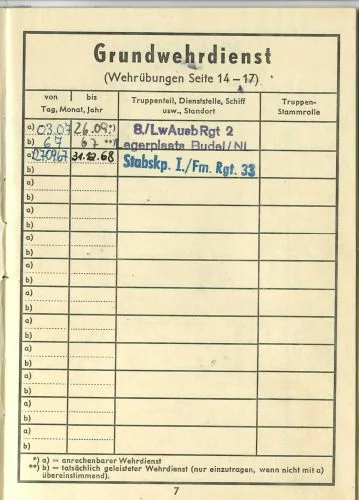 Grundwehrdienst
(Wehrübungen Seite 14–17)
von bis
Tag, Monat, Jahr
Truppenteil, Dienststelle, Schiff
usw., Standort
Truppen-
Stammrolle
a) 03.07 26.09. *) 8./LwAusbRgt 2
b) 67 67 **) Lagerplaats Budel/NL
a) 270967 31.12.68 Stabskp. I./Fm. Rgt. 33
b)
a)
b)
a)
b)
a)
b)
a)
b)
a)
b)
a)
b)
a)
b)
a)
b)
a)
b)
a)
b)
*) a) = anrechenbarer Wehrdienst
**) b) = tatsächlich geleisteter Wehrdienst (nur einzutragen, wenn nicht mit a)
übereinstimmend).
7